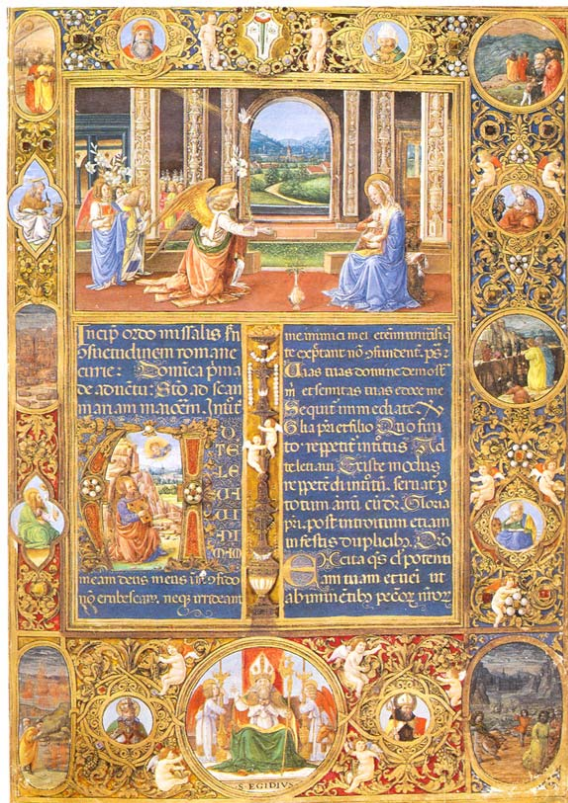 Incip ordo missalis scn
ɔsuetudinem romane
curie: Domica pma
de adventu: Stõ ad scam
mariam maiorem. Introit
A
D
TE LE
VA
VI
NI
MAM
meam deus meus in te ɔfido
nõ erubescam, neq irrideant
me inimici mei etenim universi q
te expectant nõ ɔfundent. ps:
Vias tuas domine demostr
m et semitas tuas edoce me
Sequit immediate
Glia pri et filio Quo fini
to reppetit introitus Ad
te levavi Et iste modus
reppetendi introitu servat p
totum anni circulo. Gloria
pri. post introitum etiam
in festis duplicib. Oro
Excita qs dne potenti
am tuam et veni ut
ab iminentib peccor nror
S · EGIDIVS